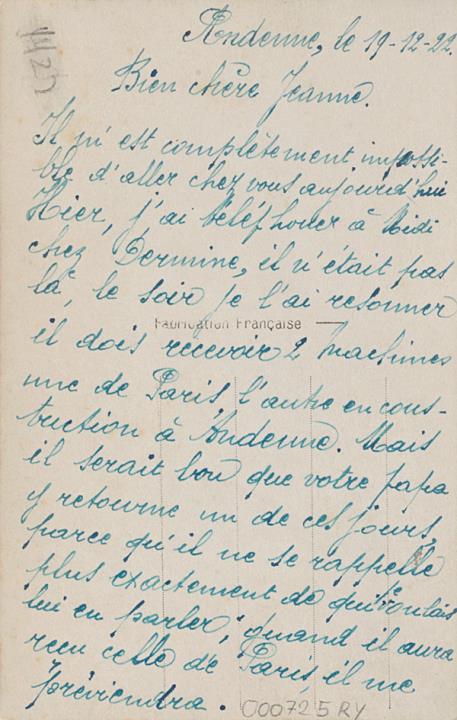 Andenne, le 19-12-22.
1427
Bien chère Jeanne.
Il m'est complètement impossi-
ble d'aller chez vous aujourd'hui
Hier, j'ai téléphoner à Midi
chez Dermine, il n'était pas
là, le soir je l'ai resonner
Fabrication Française
il dois recevoir 2 machines
une de Paris l'autre en cons-
truction à Andenne. Mais
il serait bon que votre papa
y retourne un de ces jours,
parce qu'il ne se rappelle
plus exactement de qui je voulais
lui en parler, quand il aura
recu celle de Paris, il me
préviendra.
000725 RY